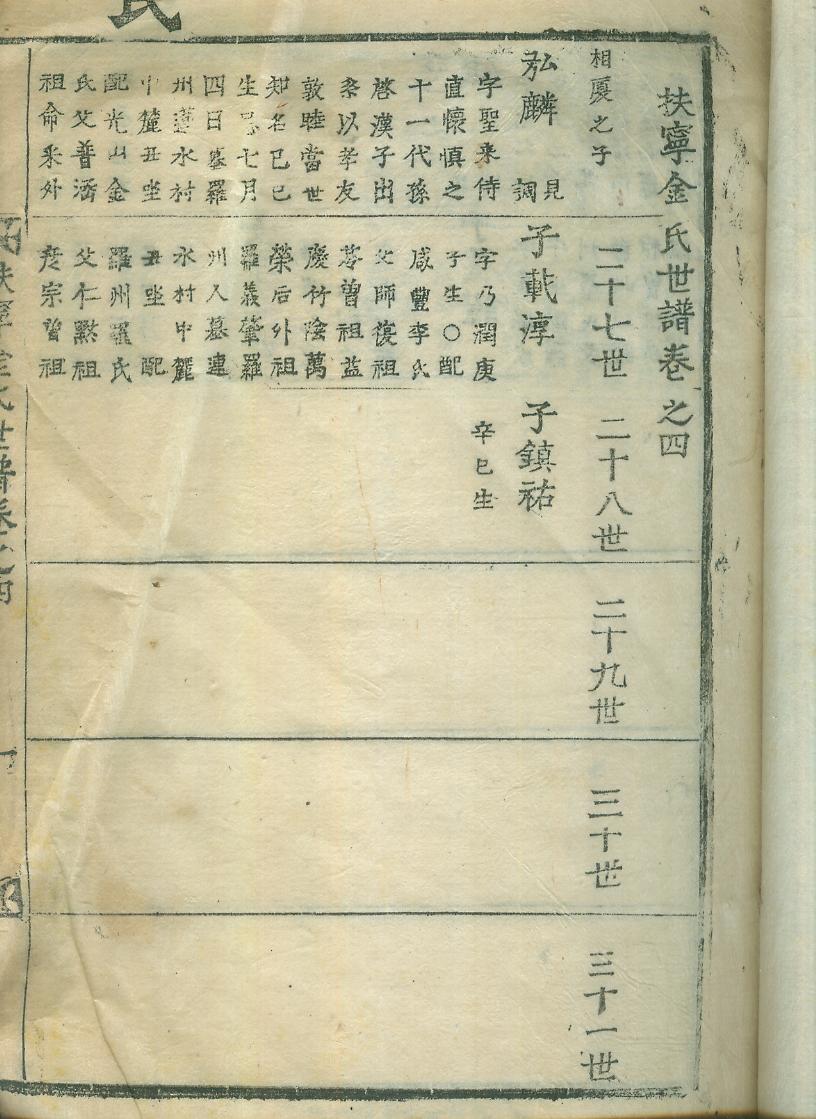 氏
扶寧金氏世譜卷之四
相廈之子
二十七世
二十八世
二十九世
三十世
三十一世
弘麟
見
調
字聖来侍
直懷慎之
十一代孫
啓漢子出
系以孝友
敦睦當世
知名己巳
生 七月
四日墓羅
州 水村
中麓丑坐
配光山金
氏父普涵
祖命采外
子載淳
字乃潤庚
子生○配
咸豐李氏
父師復祖
曾祖益
慶竹陰萬
榮后外祖
羅義肇羅
州人墓連
水村中麓
丑坐配
羅州羅氏
父仁黙祖
彦宗曾祖
子鎮祐
辛巳生
扶寧金氏世譜卷之四